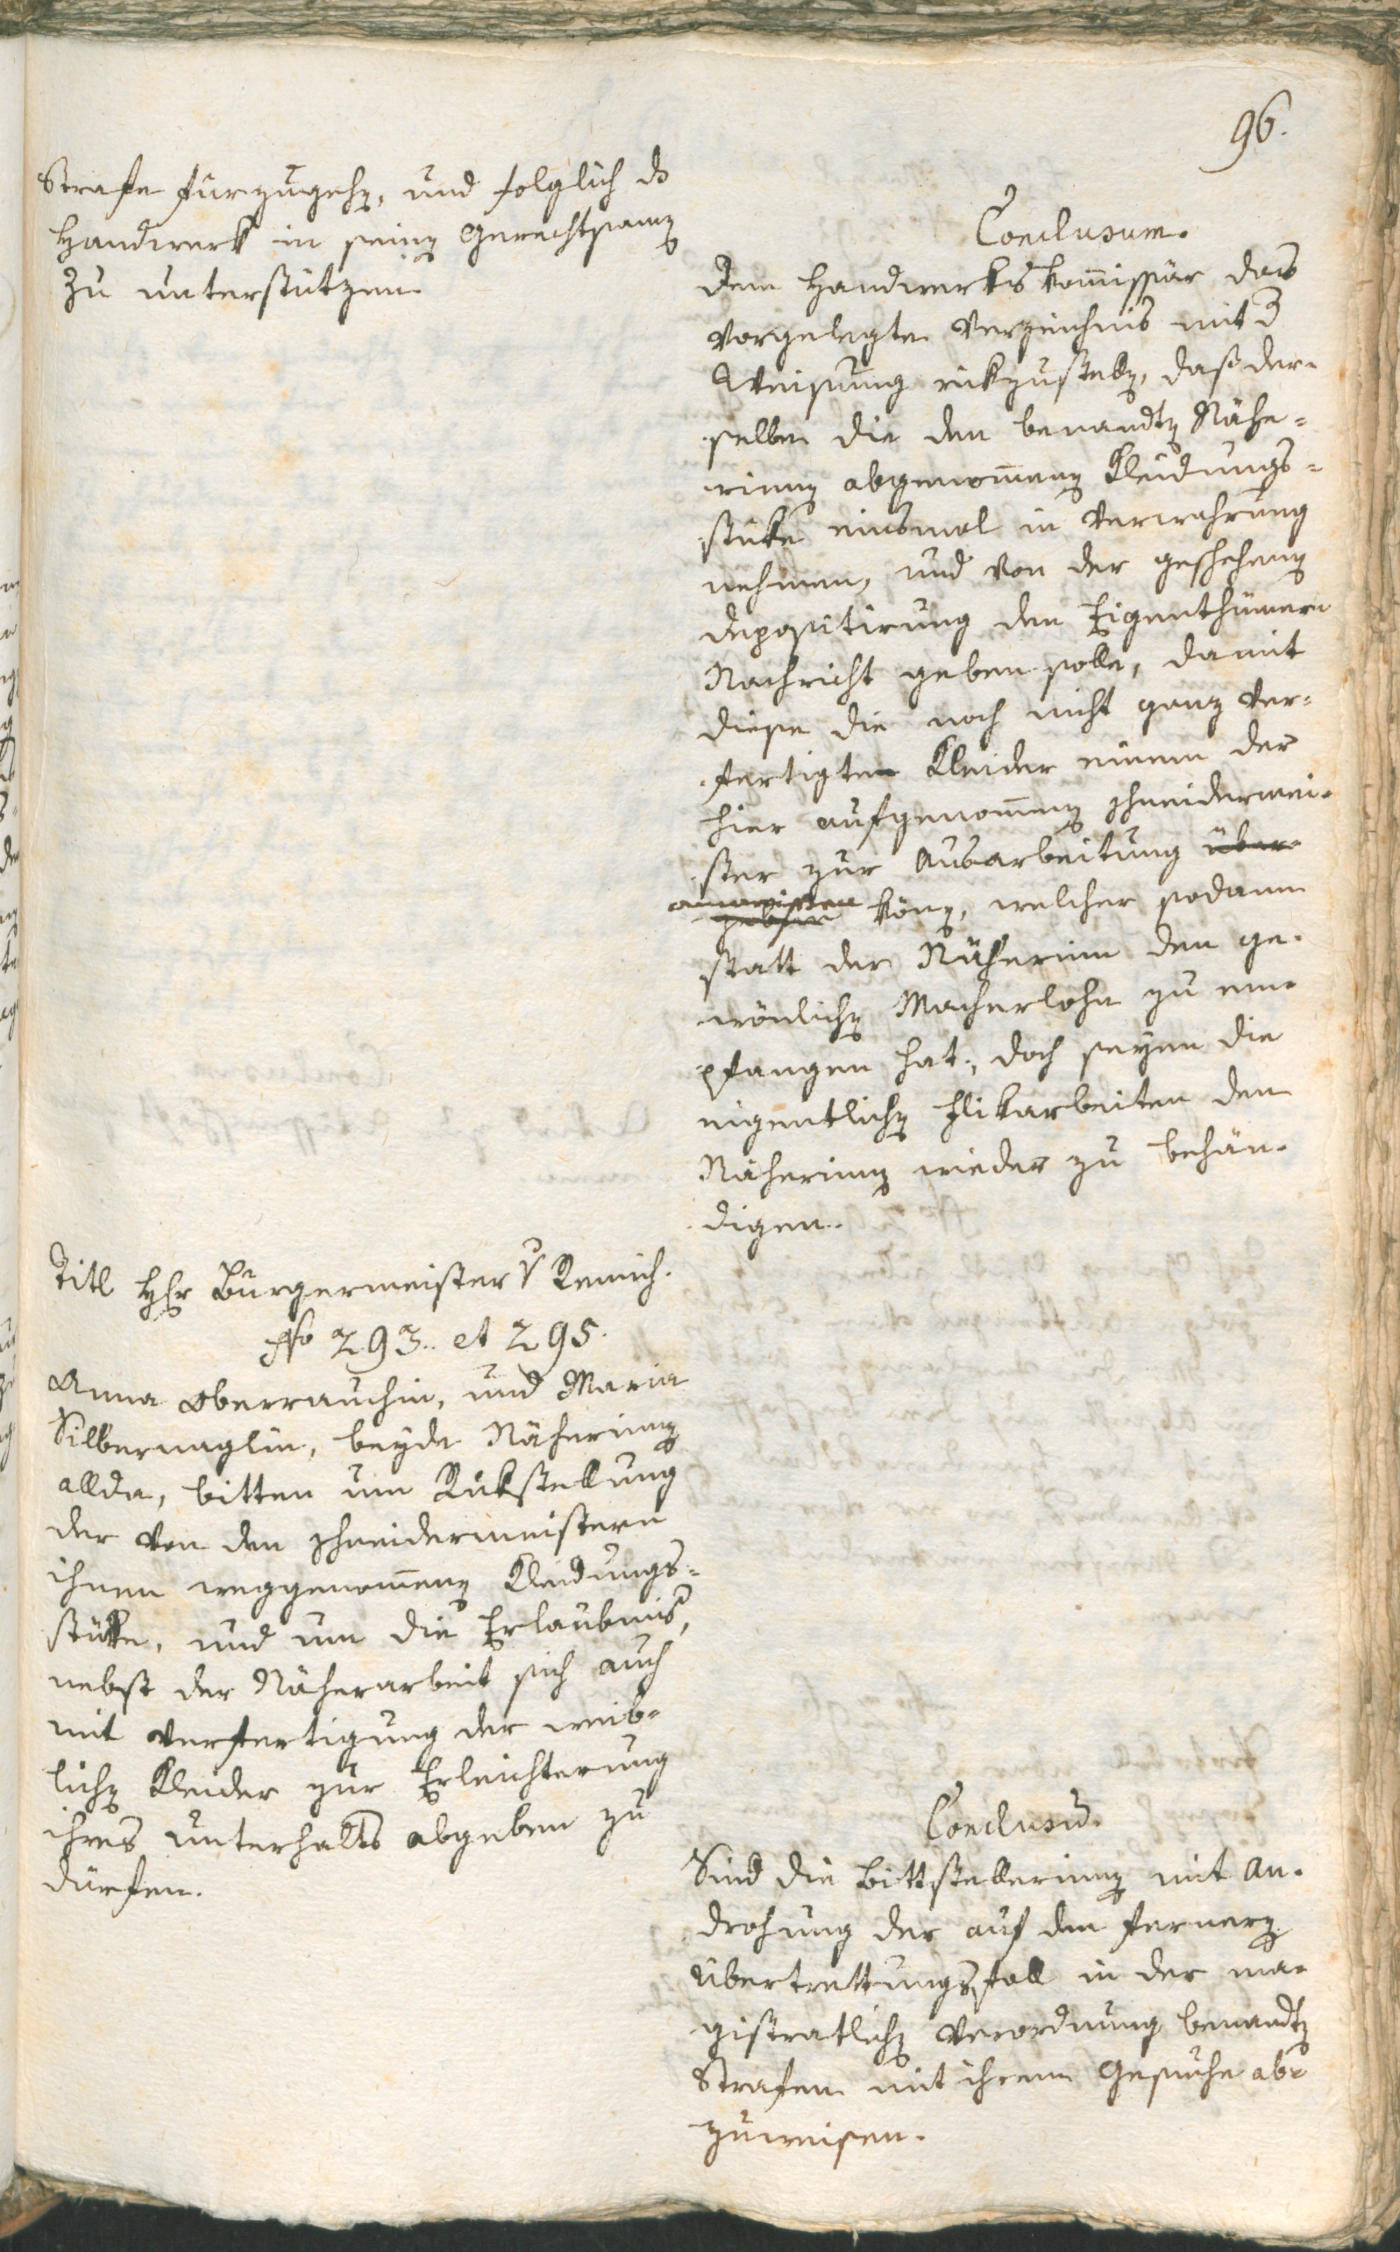 96.
Strafe fürzugehen, und folglich ds
Handwerk in seinen Gerechtsamen
zu unterstützen.
Conclusum.
Dem Handwerks Kommissär das
vorgelegte Verzeichnis mit d
Weisung rükzustellen, daß der¬
selbe die den benandten Nähe¬
rinnen abgenommenen Kleidungs¬
stüke einsmal in Verwahrung
nehmen, und von der geschehenen
Depositirung den Eigenthümern
Nachricht geben solle, damit
diese die noch nicht ganz ver¬
fertigten Kleider einem der
hier aufgenommenen Schneidermei¬
ster zur Ausarbeitung über¬
anweisen
geben können, welcher sodann
statt der Näherinn den ge¬
wönlichen Macherlohn zu em¬
pfangen hat; doch seyen die
eigentlichen Flikarbeiten den
Näherinnen wieder zu behän¬
digen.
Titl Hr Burgermeister v Remich.
No 293. et 295.
Anna Oberrauchin, und Maria
Silbernaglin, beyde Näherinnen
allda, bitten um Rükstellung
der von den Schneidermeistern
ihnen weggenommenen Kleidungs¬
stüke, und um die Erlaubnis,
nebst der Näherarbeit sich auch
mit Verfertigung der weib¬
lichen Kleider zur Erleichterung
ihres Unterhalts abgeben zu
dürfen.
Conclusū.
Sind die Bittstellerinnen mit An¬
drohung der auf den fernern
Übertrettungsfall in der ma¬
gistratlichen Verordnung benandten
Strafen mit ihrem Gesuche ab¬
zuweisen.